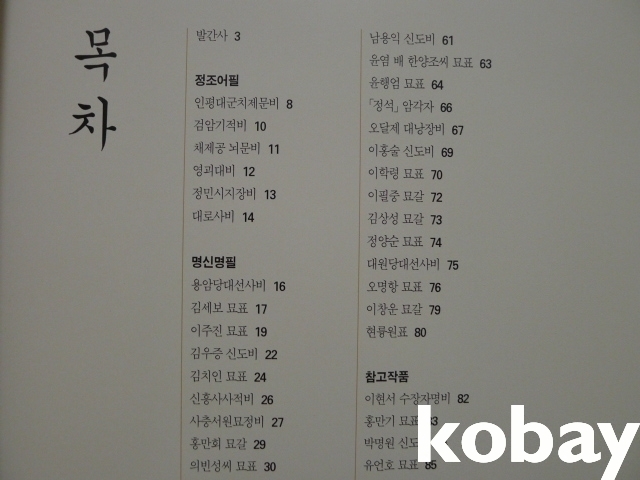 목차
발간사 3
정조어필
인평대군치제문비 8
검암기적비 10
채제공 뇌문비 11
영괴대비 12
정민시지장비 13
대로사비 14
명신명필
용암당대선사비 16
김세보 묘표 17
이주진 묘표 19
김우증 신도비 22
김치인 묘표 24
신흥사사적비 26
사충서원묘정비 27
홍만회 묘갈 29
의빈성씨 묘표 30
남용익 신도비 61
윤염 배 한양조씨 묘표 63
윤행엄 묘표 64
「정석」 암각자 66
오달제 대낭장비 67
이홍술 신도비 69
이학령 묘표 70
이필중 묘갈 72
김상성 묘갈 73
정양순 묘표 74
대원당대선사비 75
오명항 묘표 76
이창운 묘갈 79
현륭원표 80
참고작품
이현서 수장자명비 82
홍만기 묘표
박명원
유언호 묘표 85
kobay